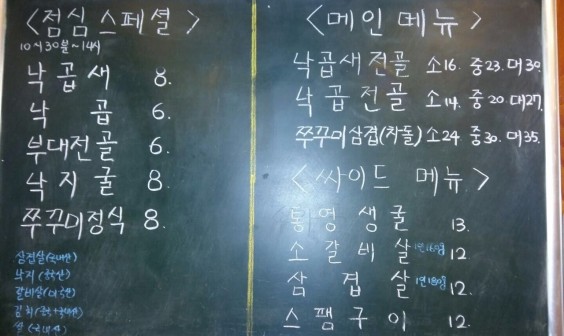 <점심 스페셜>
10시30분~14시
낙곱새 8.
낙곱 6.
부대전골 6.
낙지굴 8.
쭈꾸미정식 8.
삼겹살(국내산)
낙지(중국산)
갈비살(미국산)
쌀(국내산)
<메인 메뉴>
낙곱새전골 소16. 중23. 대30.
낙곱전골 소14. 중20. 대27.
쭈꾸미삼겹(차돌) 소24 중30. 대35.
<싸이드 메뉴>
통영생굴 13.
소갈비살 12.
삼겹살 12.
스팸구이 12.